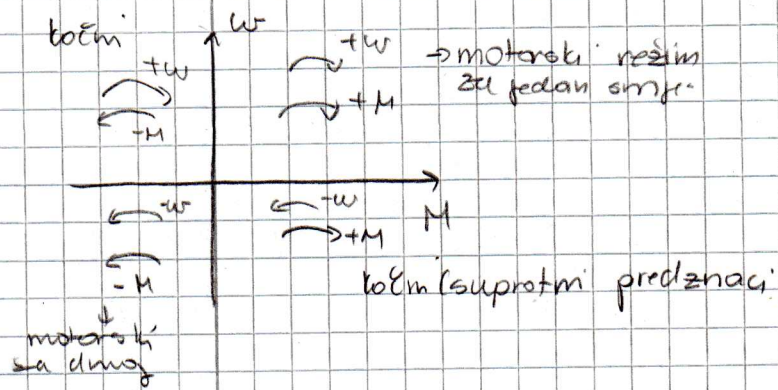 kočni
ω
+ω
→ motorski režim
za jedan smje.
+ω
-M
+M
-ω
-M
-ω
+M
M
kočni (suprotni predznaci
motorski
za drugi